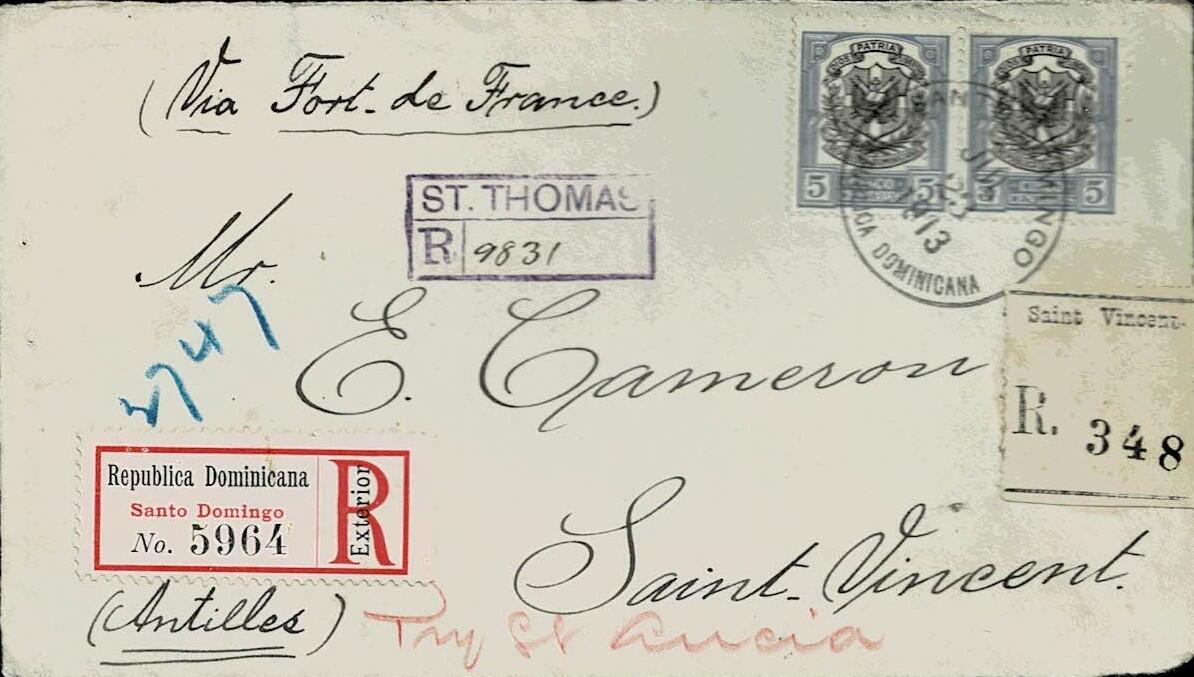 (Via Fort-de France.)
PATRIA
PATRIA
5 5
5 5
SANTO DOMINGO
23
1913
DOMINICANA
ST. THOMAS
R 9831
Mr.
E. Cameron
Saint Vincent
R. 348
Republica Dominicana
Santo Domingo
No. 5964
R Exterior
Saint-Vincent.
(Antilles)
Try St Lucia